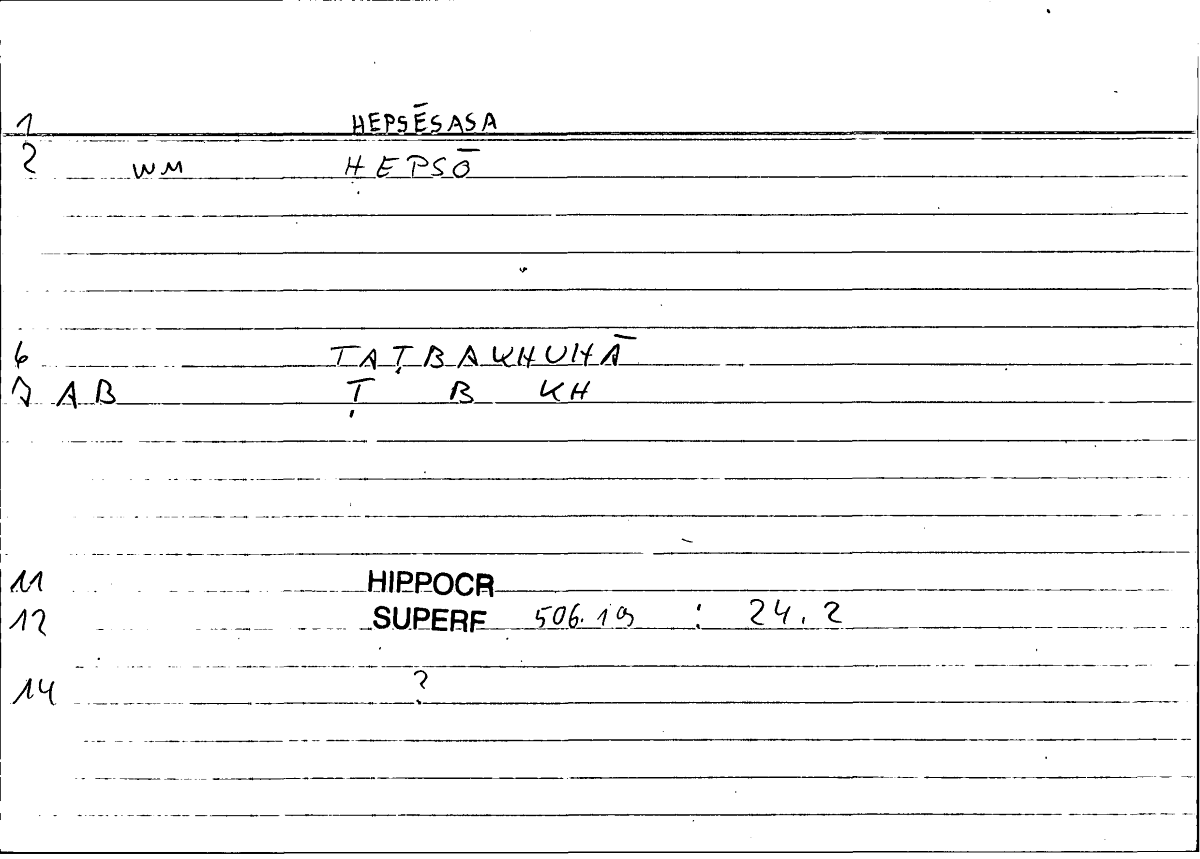 1 HEPSĒSASA
2 WM HEPSŌ
6 TAṬBAKHUHĀ
7 AB Ṭ B KH
11 HIPPOCR
12 SUPERF 506.19 : 24.2
14 ?